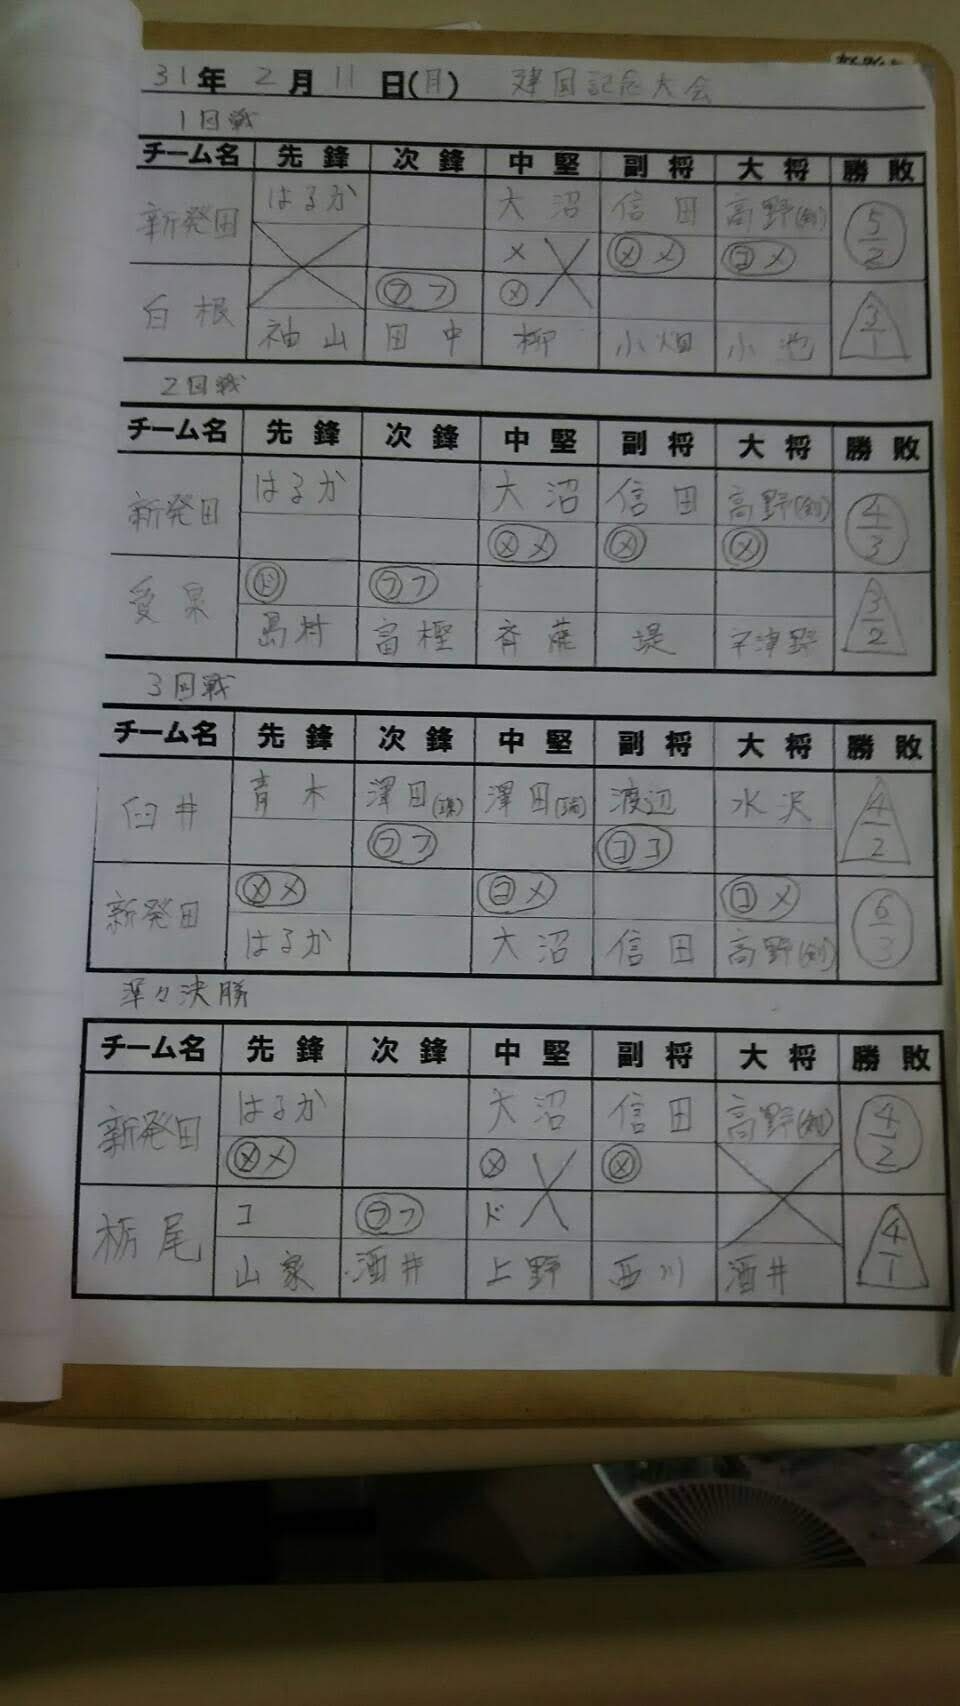 31年 2月 11日(月) 建国記念大会
1回戦
チーム名 先鋒 次鋒 中堅 副将 大将 勝敗
新発田 はるか 大沼 信田 高野(剣) 5/2
メ ㋱メ ㋙メ
白根 ㋫フ ㋱ 3/1
袖山 田中 柳 小畑 小池
2回戦
チーム名 先鋒 次鋒 中堅 副将 大将 勝敗
新発田 はるか 大沼 信田 高野(剣) 4/3
㋱メ ㋱ ㋱
愛泉 ㋣ ㋫フ 3/2
島村 富樫 斉藤 堤 宇津野
3回戦
チーム名 先鋒 次鋒 中堅 副将 大将 勝敗
臼井 青木 澤田 澤田 渡辺 水沢 4/2
㋫フ ㋙コ
新発田 ㋱メ ㋙メ ㋙メ 6/3
はるか 大沼 信田 高野(剣)
準々決勝
チーム名 先鋒 次鋒 中堅 副将 大将 勝敗
新発田 はるか 大沼 信田 高野(剣) 4/2
㋱メ ㋱ ㋱
栃尾 コ ㋫フ ド 4/1
山家 酒井 上野 西川 酒井